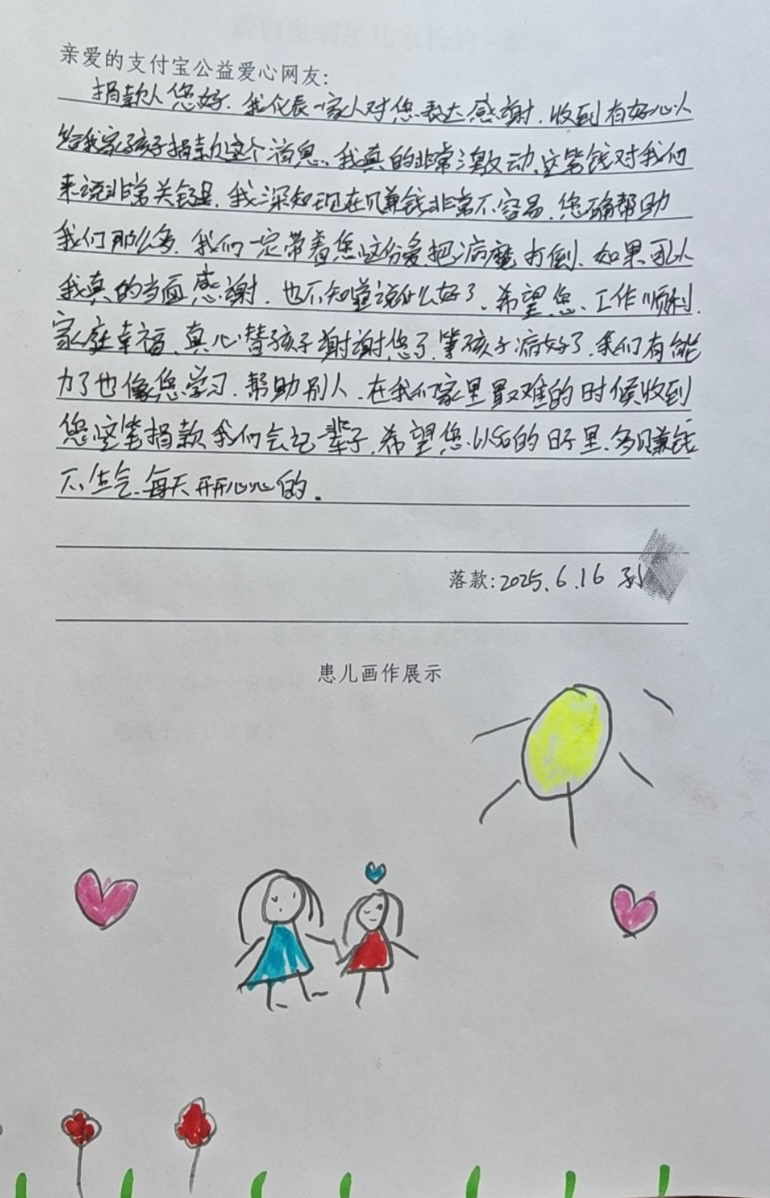 亲爱的支付宝公益爱心网友:
捐款人您好.我代表一家人对您表达感谢.收到有好心人
给我家孩子捐款这个消息.我真的非常激动.这笔钱对我们
来说非常关键.我深知现在赚钱非常不容易.您确帮助
我们那么多.我们一定带着您这份爱把病魔打倒.如果可以
我真的当面感谢.也不知道说什么好了.希望您.工作顺利.
家庭幸福.真心替孩子谢谢您了.等孩子病好了.我们有能
力了也像您学习.帮助别人.在我们家里最难的时候收到
您这笔捐款我们会记一辈子.希望您.以后的日子里.多赚钱
不生气.每天开开心心的.
落款:2025.6.16
患儿画作展示